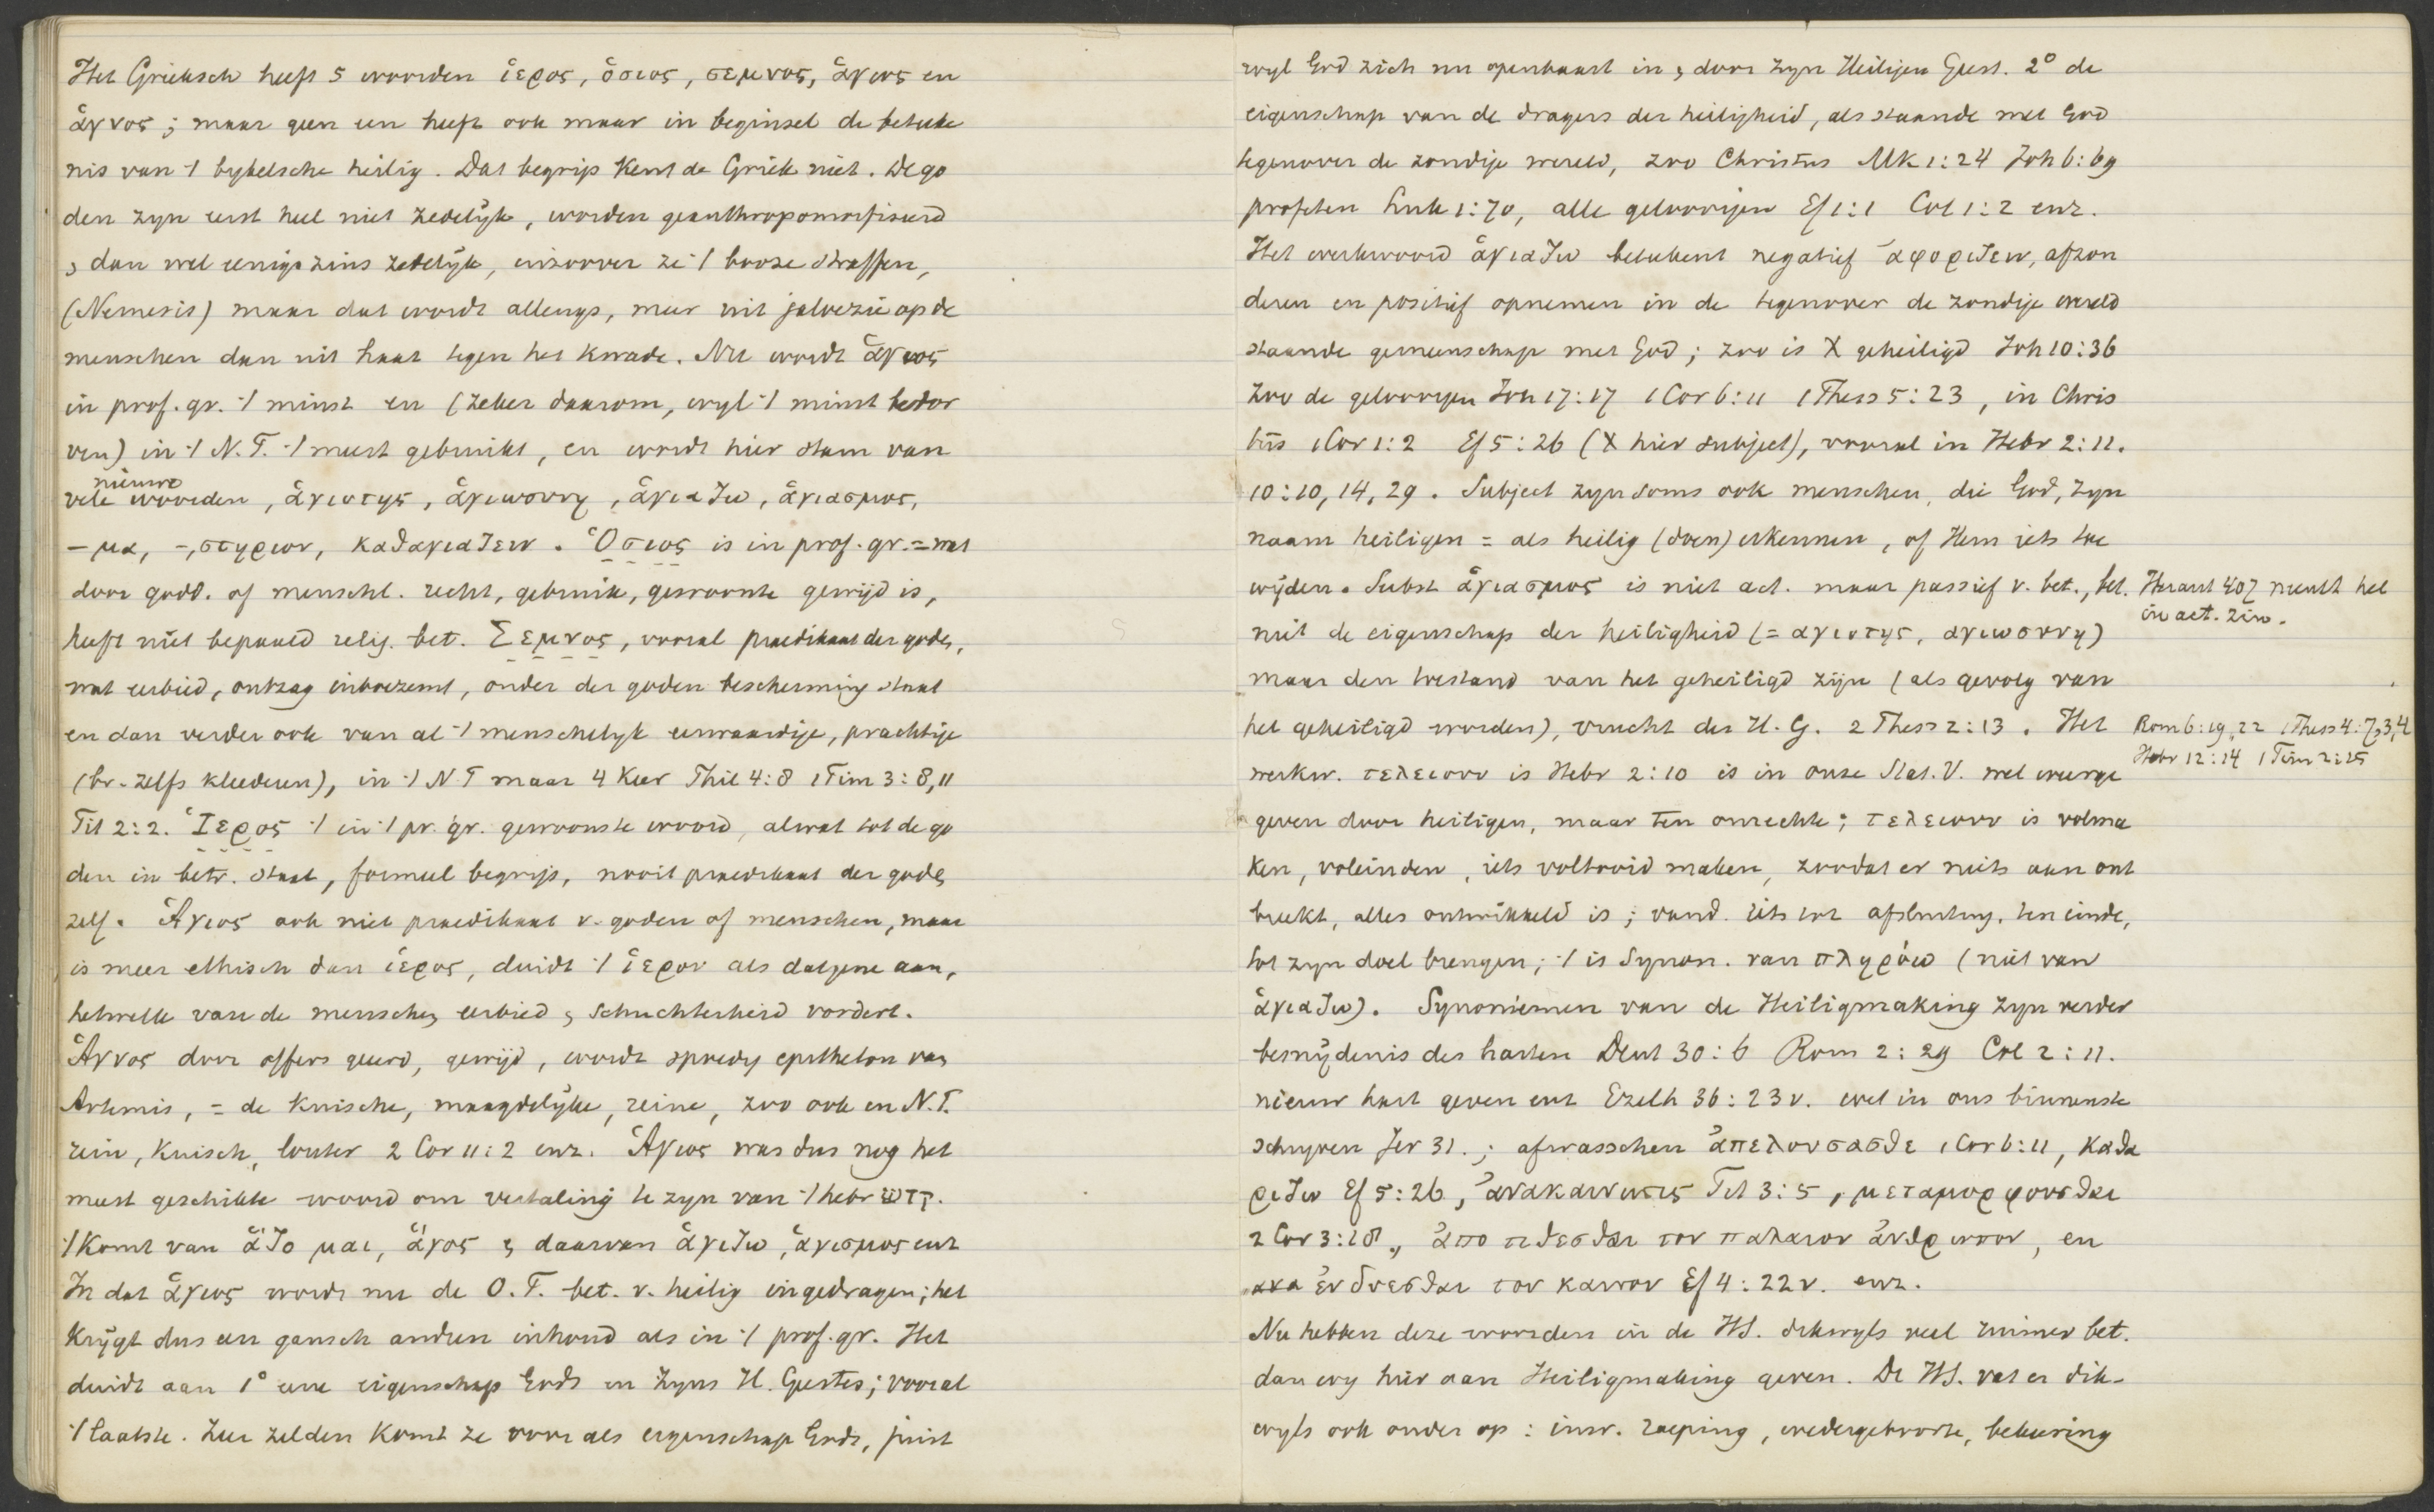 Het Grieksch heeft 5 woorden ἱερος, ὁσιος, σεμνος, ἁγιος en
ἁγνος; maar geen een heeft ook maar in beginsel de beteeke
nis van 't bybelsche heilig. Dat begrip kent de Griek niet. De go
den zyn eerst heel niet zedelijk, worden geanthropomorfiseerd
& dan wel eenigszins zedelijk, inzoover ze 't booze straffen,
(Nemesis) maar dat wordt allengs, meer uit jaloezie op de
menschen dan uit haat tegen het kwade. Nu wordt ἁγιος
in prof. gr. 't minst en (zeker daarom, wyl 't minst bedor
ven) in 't N.T. 't meest gebruikt, en wordt hier stam van
vele nieuwe woorden, ἁγιοτης, ἁγιωσυνη, ἁγιαζω, ἁγιασμος,
- μα, -, στηριον, καθαγιαζειν. Ὁσιος is in prof. gr. = wat
door godd. of menschl. recht, gebruik, gewoonte gewijd is,
heeft niet bepaald relig. bet. Σεμνος, vooral praedikaat der goden,
wat eerbied, ontzag inboezemt, onder der goden bescherming staat
en dan verder ook van al 't menschelyk eerwaardige, prachtige
(bv. zelfs kleederen), in 't N.T maar 4 keer Phil 4:8 1 Tim 3:8, 11
Tit 2:2. Ἱερος 't in 't pr. gr. gewoonste woord, alwat tot de go
den in betr. staat, formeel begrip, nooit praedikaat der goden
zelf. Ἁγιος ook niet praedikaat v. goden of menschen, maar
is meer ethisch dan ἱερος, duidt 't ἱερον als datgene aan,
hetwelk van de menschen eerbied & schuchterheid vordert.
Ἁγνος door offers geeerd, gewijd, wordt spoedig epitheton van
Artemis, = de kuische, maagdelijke, reine, zoo ook en N.T.
rein, kuisch, louter 2 Cor 11:2 enz. Ἁγιος was dus nog het
meest geschikte woord om vertaling te zyn van 't hebr קדש.
't Komt van ἁζομαι, ἁγος & daarvan ἁγιζω, ἁγισμος enz
In dat ἁγιος wordt nu de O.T. bet. v. heilig ingedragen; het
krijgt dus een gansch andren inhoud als in 't prof. gr. Het
duidt aan 1° eene eigenschap Gods en Zyns H. Geestes; vooral
't laatste. Zeer zelden komt ze voor als eigenschap Gods, juist
wyl God zich nu openbaart in & door Zyn Heiligen Geest. 2° de
eigenschap van de dragers der heiligheid, als staande met God
tegenover de zondige wereld, zoo Christus Mk 1:24 Joh 6:69
profeten Luk 1:70, alle geloovigen Ef 1:1 Col 1:2 enz.
Het werkwoord ἁγιαζω beteekent negatief ἀφοριζειν, afzon
deren en positief opnemen in de tegenover de zondige wereld
staande gemeenschap met God; zoo is X geheiligd Joh 10:36
Zoo de geloovigen Joh 17:17 1 Cor 6:11 1 Thess 5:23, in Chris
tus 1 Cor 1:2 Ef 5:26 (X hier subject), vooral in Hebr 2:11.
10:10, 14, 29. Subject zyn soms ook menschen, die God, Zyn
naam heiligen = als heilig (doen) erkennen, of Hem iets toe
wijden. Subst ἁγιασμος is niet act. maar passief v. bet., bet.
niet de eigenschap der heiligheid (= αγιοτης, αγιωσυνη)
maar den toestand van het geheiligd zijn (als gevolg van
het geheiligd worden), vrucht des H. G. 2 Thess 2:13. Het
werkw. τελειουν is Hebr 2:10 is in onze Stat. V. wel weerge
geven door heiligen, maar ten onrechte; τελειουν is volma
ken, voleinden, iets voltooid maken, zoodat er niets aan ont
breekt, alles ontwikkeld is; vand. iets tot afsluiting, ten einde,
tot zyn doel brengen; 't is Synon. van πληρόω (niet van
ἁγιαζω). Synoniemen van de Heiligmaking zyn verder
besnijdenis des harten Deut 30:6 Rom 2:29 Col 2:11.
nieuw hart geven enz Ezech 36:23 v. wet in ons binnenste
schryven Jer 31.; afwasschen ἀπελουσασθε 1 Cor 6:11, καθα
ριζω Ef 5:26, ἀνακαινωσις Tit 3:5, μεταμορφουσθαι
2 Cor 3:18, ἀποτιθεσθαι τον παλαιον ἀνθρωπον, en
ἐνδυεσθαι τον καινον Ef 4:22 v. enz.
Nu hebben deze woorden in de HS. dikwyls veel ruimer bet.
dan wy hier aan Heiligmaking geven. De HS. vat er dik-
wyls ook onder op: inw. roeping, wedergeboorte, bekeering
Heraut 407 neemt het
in act. zin.
Rom 6:19, 22 1 Thess 4:7, 3, 4
Hebr 12:14 1 Tim 2:15